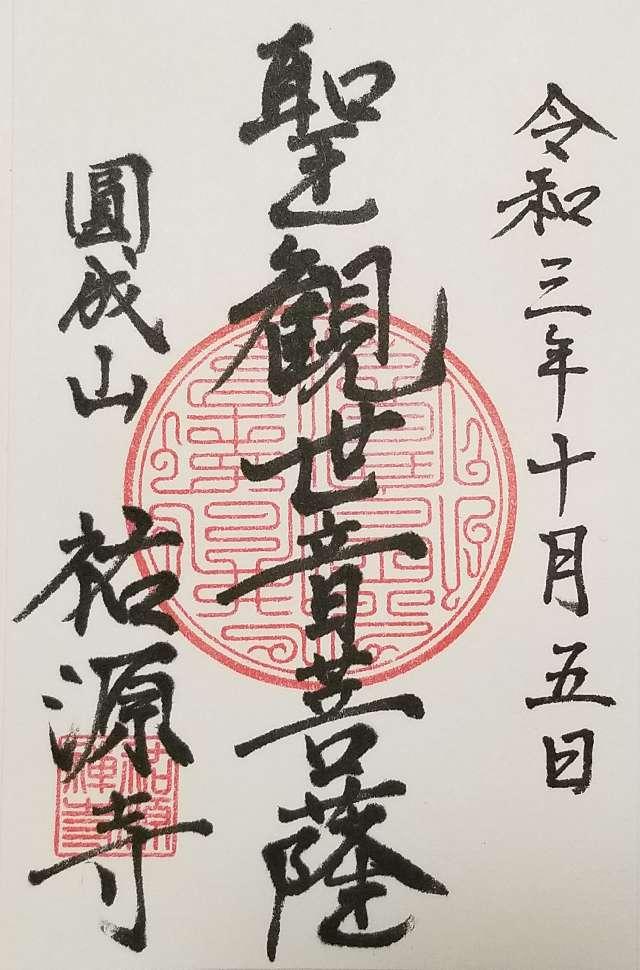 令和三年十月五日
聖観世音菩薩
圓成山 祐源寺